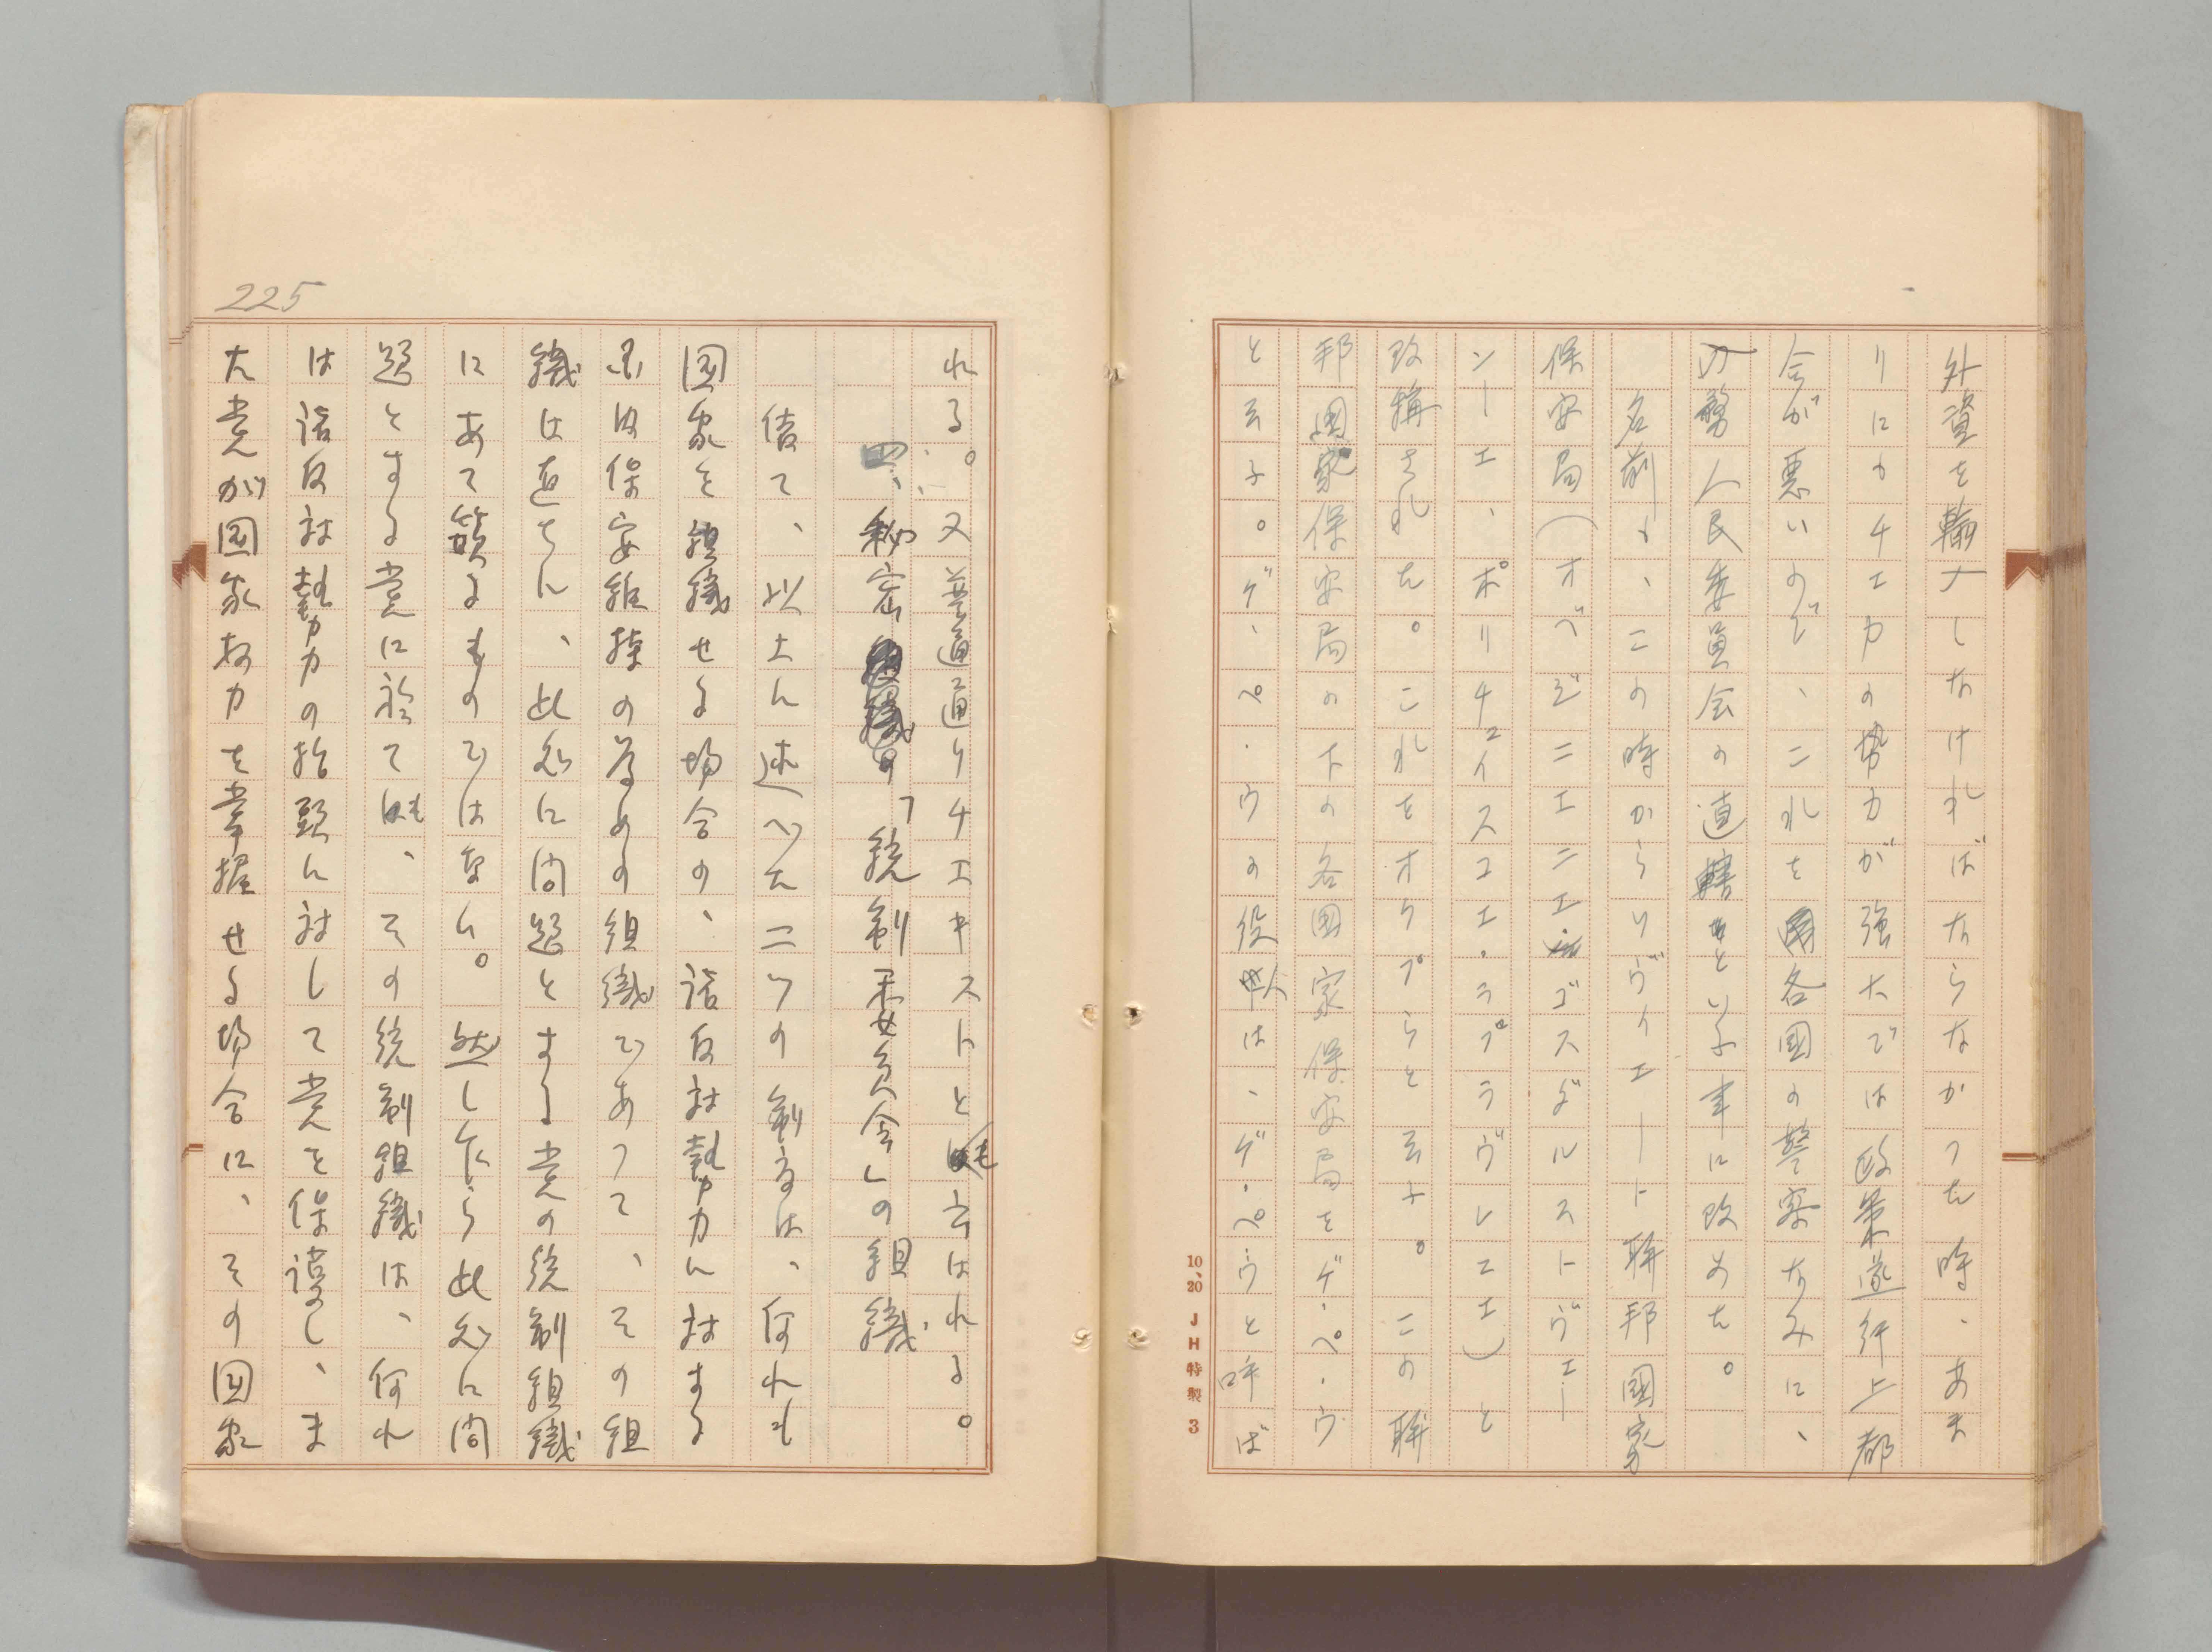 外資を輸入しなければならなかつた時、あま
りにもチエカの勢力が強大では政策遂行上都
合が悪いので、これを各国の警察なみに、
人民委員会の直轄といふ事に改めた。
名前も、この時からソヴイエート聯邦國家
保安局（オベデニエニエ・ゴスダルストヴエー
ンーエ、ポリチエイスコエ・ウプラヴレニエ）と
改稱された。これをオゲプウと云ふ。この聯
邦國家保安局の下の各國家保安局をゲ・ペ・ウ
と云ふ。ゲ・ペ・ウの役人は、ゲ・ペウと呼ば
10、20 JH特製 3
225
れる。又普通通りチエキストとも云はれる。
四、秘密の「統制委員会」の組織
偖て、以上に述べた二つの制度は、何れも
国家を組織せる場合の、諸反対勢力に対する
保安維持の為めの組織であつて、その組
織は直ちに、此処に問題とする党の統制組織
にあて篏るものではない。然し乍ら此処に問
題とする党に於ても、その統制組織は、何れ
は諸反対勢力の抬頭に対して党を保護し、ま
た党が国家权力を掌握せる場合に、その国家